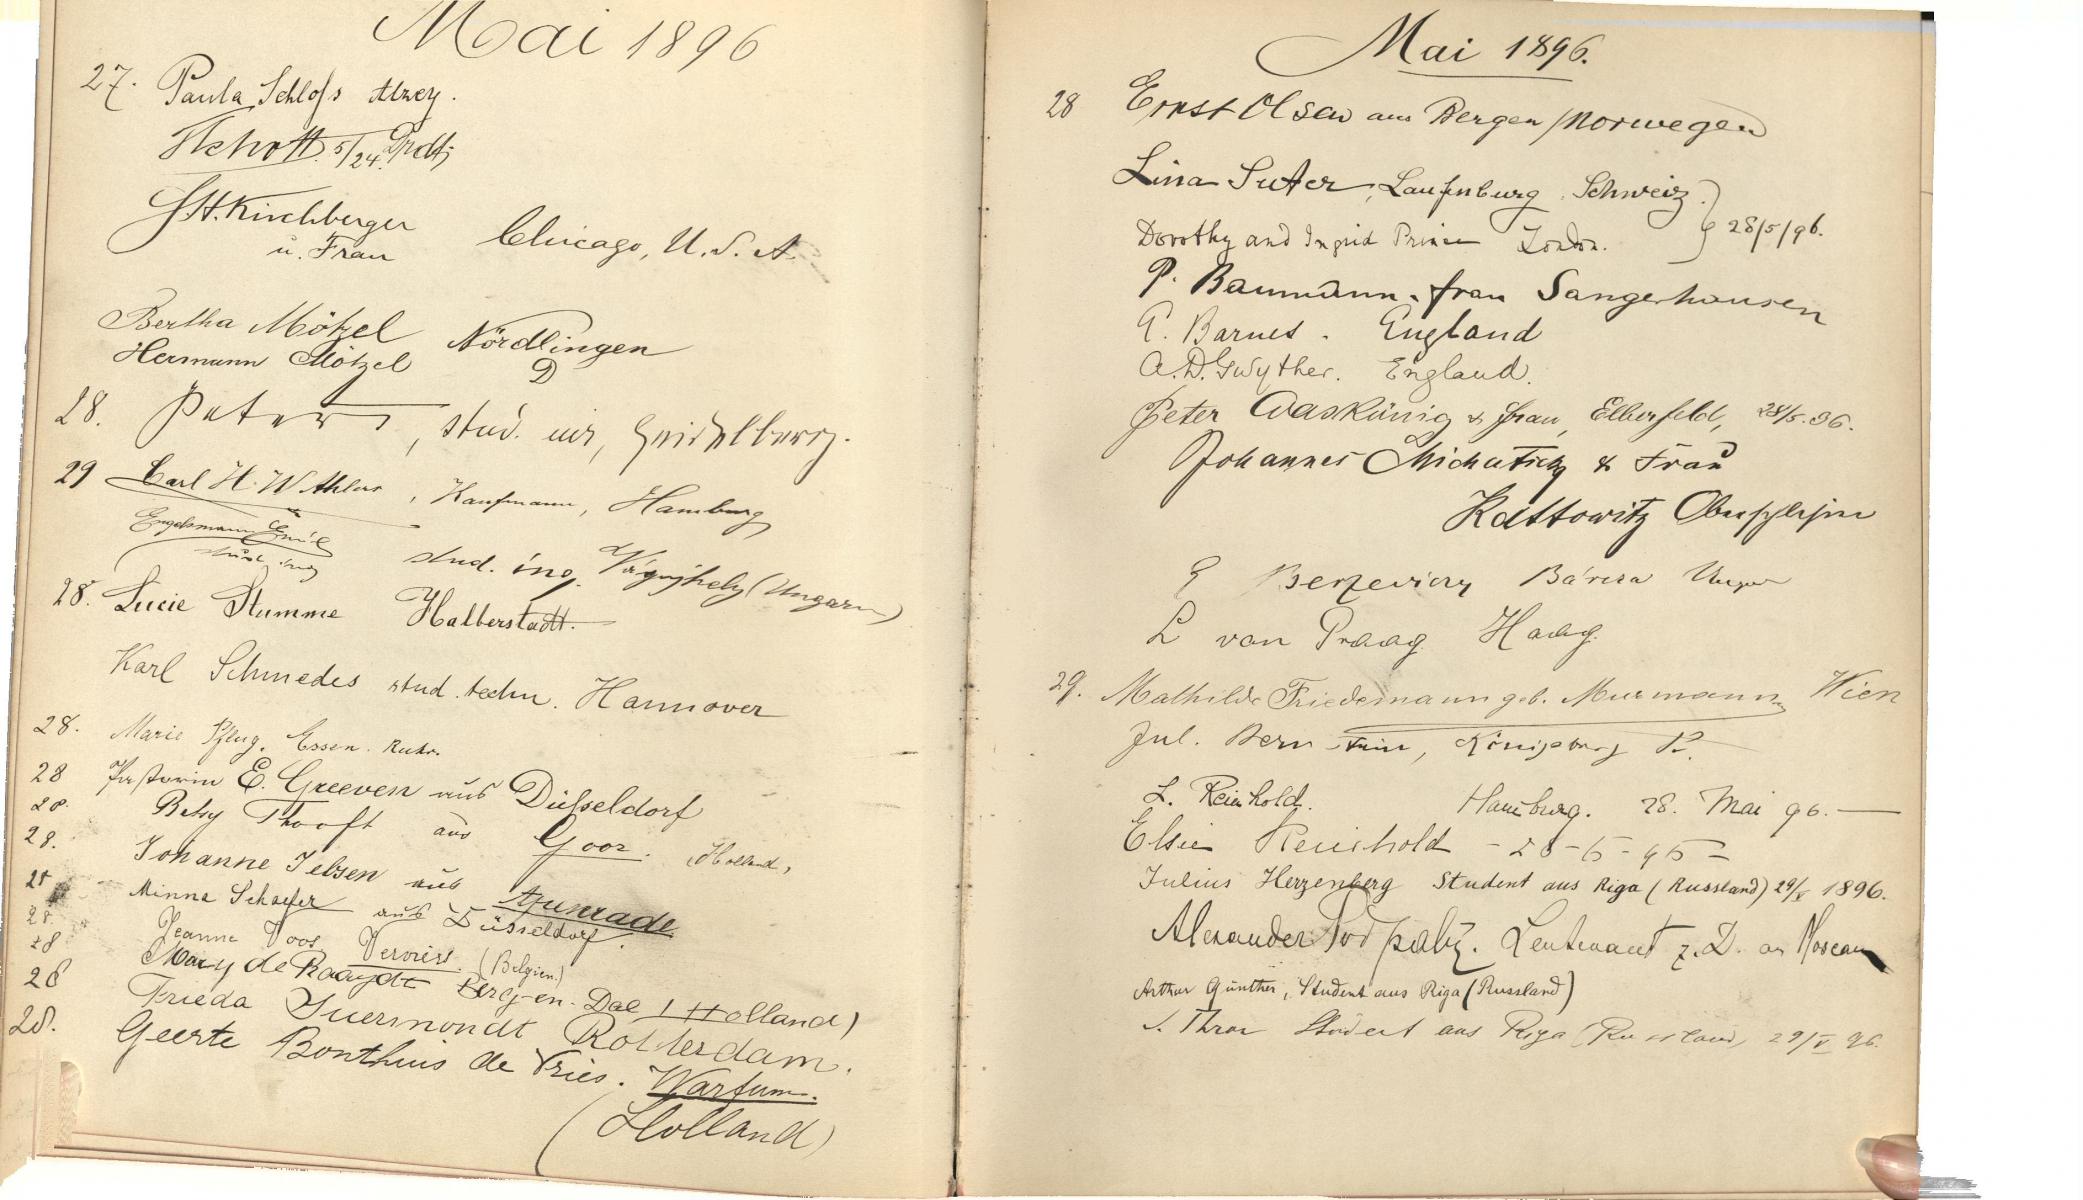 Mai 1896
27. Paula Schloss Alzey.
Schott. 5/24.
H. Kirchberger
u. Frau Chicago, U. S. A.
Bertha Mötzel Nördlingen
Hermann Mötzel
28. Peters, stud. iur, Heidelberg.
29 Carl H. W. Ahlers, Kaufmann, Hamburg
Engelsmann Emil
stud. ing. (Ungarn)
28. Lucie Stumme Halberstadt.
Karl Schmedes stud. techn. Hannover
28. Marie Pflug. Essen. Ruhr.
28 Pastorin E. Greeven aus Düsseldorf
28. Betsy Thooft aus Goor. (Holland)
28. Johanne Jebsen aus Apenrade
28 Minna Schaefer aus Düsseldorf.
28. Jeanne Voos Verviers. (Belgien.)
28 Mary de Raaydt Berg-en-Dal (Holland)
28 Frieda Suermondt Rotterdam.
28. Geerte Bonthuis de Vries. Warfum.
(Holland)
Mai 1896.
28 Ernst Olsen aus Bergen / Norwegen
Lina Suter, Laufenburg. Schweiz.
Dorothy and Ingrid Prince London. 28/5/96.
P. Baumann. Frau Sangerhausen
Barnes. England
A. D. Gwyther. England.
Peter Waskönig & Frau, Elberfeld, 28/5.96.
Johannes & Frau
Kattowitz Oberschlesien
E Berzeviczy Ungarn
L van Praag Haag.
29. Mathilde Friedemann geb. Murmann Wien
Jul. Bernstein, Königsberg Pr.
L. Reinhold. Hamburg. 28. Mai 96.—
Elsie Reinhold
Julius Herzenberg Student aus Riga (Russland) 29/V 1896.
Alexander Leutenant z. D. Moscau
Arthur Günther, Student aus Riga (Russland)
Student aus Riga (Russland) 29/V 96.